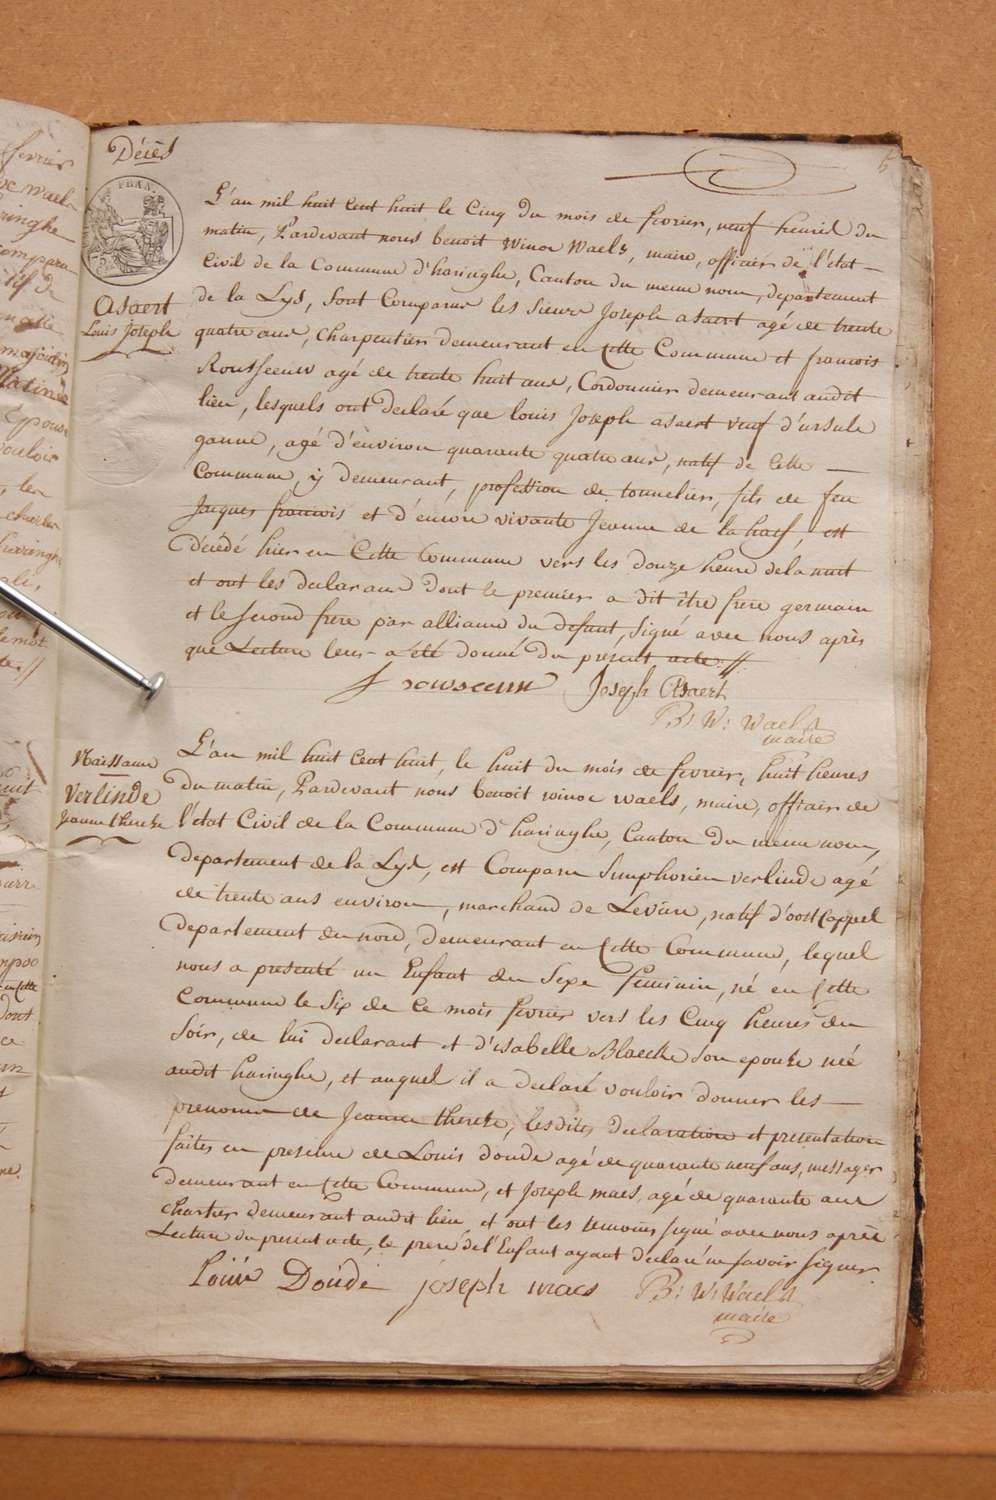 Décès
5
FRAN.
Asaert
Louis Joseph
L'an mil huit cent huit le Cinq du mois de fevrier, neuf heures du
matin, Pardevant nous benoit Winoc Waels, maire, officier de l'état
Civil de la Commune d'haringhe, Canton du meme nom, departement
de la Lys, sont Comparus les sieurs Joseph asaert agé de trente
quatre ans, charpentier demeurant en Cette Commune et francois
Rousseeuw agé de trente huit ans, Cordonnier demeurant audit
lieu, lesquels ont declaré que louis Joseph asaert veuf d'ursule
ganne, agé d'environ quarante quatre ans, natif de Cette
Commune, y demeurant, profession de tonnelier, fils de feu
Jaques francois et d'encore vivante Jeanne de la haef, est
décédé hier en Cette Commune vers les douze heure de la nuit
et ont les declarans dont le premier a dit être frere germain
et le second frere par alliance du defunt, signé avec nous après
que Lecture leur a été donné du present acte.//
f rousseeuw Joseph Asaert
B: W: Waels
maire
Naissance
Verlinde
Jeanne therese
L'an mil huit Cent huit, le huit du mois de fevrier, huit heures
du matin, Pardevant nous benoit winoc waels, maire, officier de
l'état Civil de la Commune d'haringhe, Canton du meme nom,
departement de la Lys, est Comparu Simphorien verlinde agé
de trente ans environ, marchand de Levure, natif d'oost Cappel
departement du nord, demeurant en Cette Commune, lequel
nous a presenté un Enfant du Sexe feminin, né en Cette
Commune le Six de Ce mois fevrier vers les Cinq heures du
Soir, de lui declarant et d'isabelle Blaecke Son epouse née
audit haringhe, et auquel il a declaré vouloir donner les
prenoms de Jeanne therese, lesdites declaration et presentation
faites en presence de Louis doude agé de quarante neuf ans, messager
demeurant en Cette Commune, et Joseph maes, agé de quarante ans
chartier demeurant audit lieu et ont les temoins signé avec nous après
Lecture du present acte, le pere de l'Enfant ayant declaré ne savoir signer
Louis Doude joseph maes B: W: Waels
maire